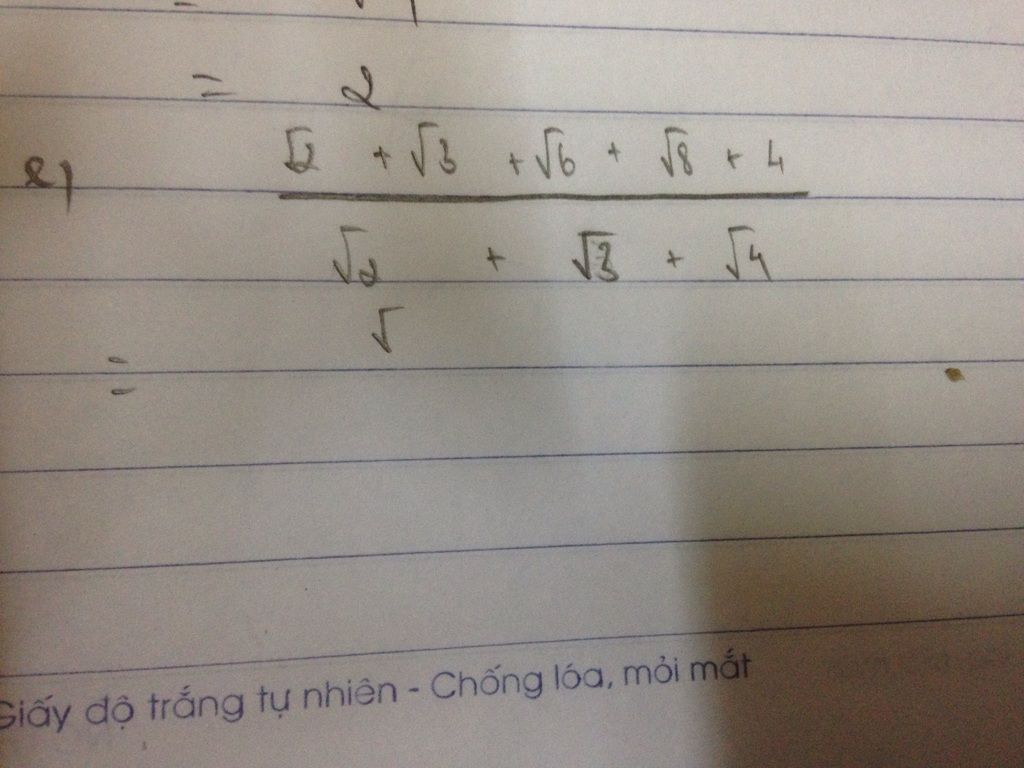 = 2
2) √2 + √3 + √6 + √8 + 4
√2 + √3 + √4
= √
Giấy độ trắng tự nhiên - Chống lóa, mỏi mắt